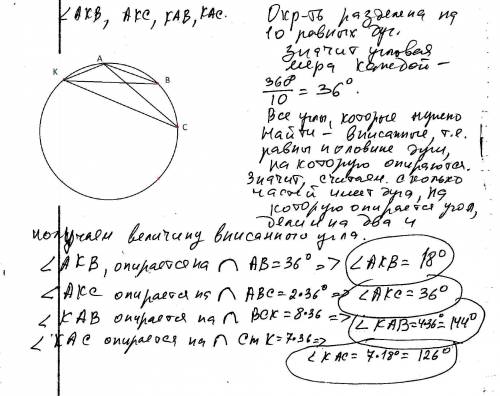 ∠AKB, AKC, KAB, KAC.
Окр-ть разделена на
10 равных дуг.
Значит угловая
мера каждой –
360°/10 = 36°.
Все углы, которые нужно
найти – вписанные, т.е.
равны половине дуги,
на которую опираются.
Значит, считаем сколько
частей имеет дуга, на
которую опирается угол,
делим на два и
получаем величину вписанного угла.
K A B C
∠AKB, опирается на ∩ AB = 36° => ∠AKB = 18°
∠AKC опирается на ∩ ABC = 2·36° => ∠AKC = 36°
∠KAB опирается на ∩ BCK = 8·36 => ∠KAB = 4·36 = 144°
∠KAC опирается на ∩ CmK = 7·36 =>
∠KAC = 7·18° = 126°